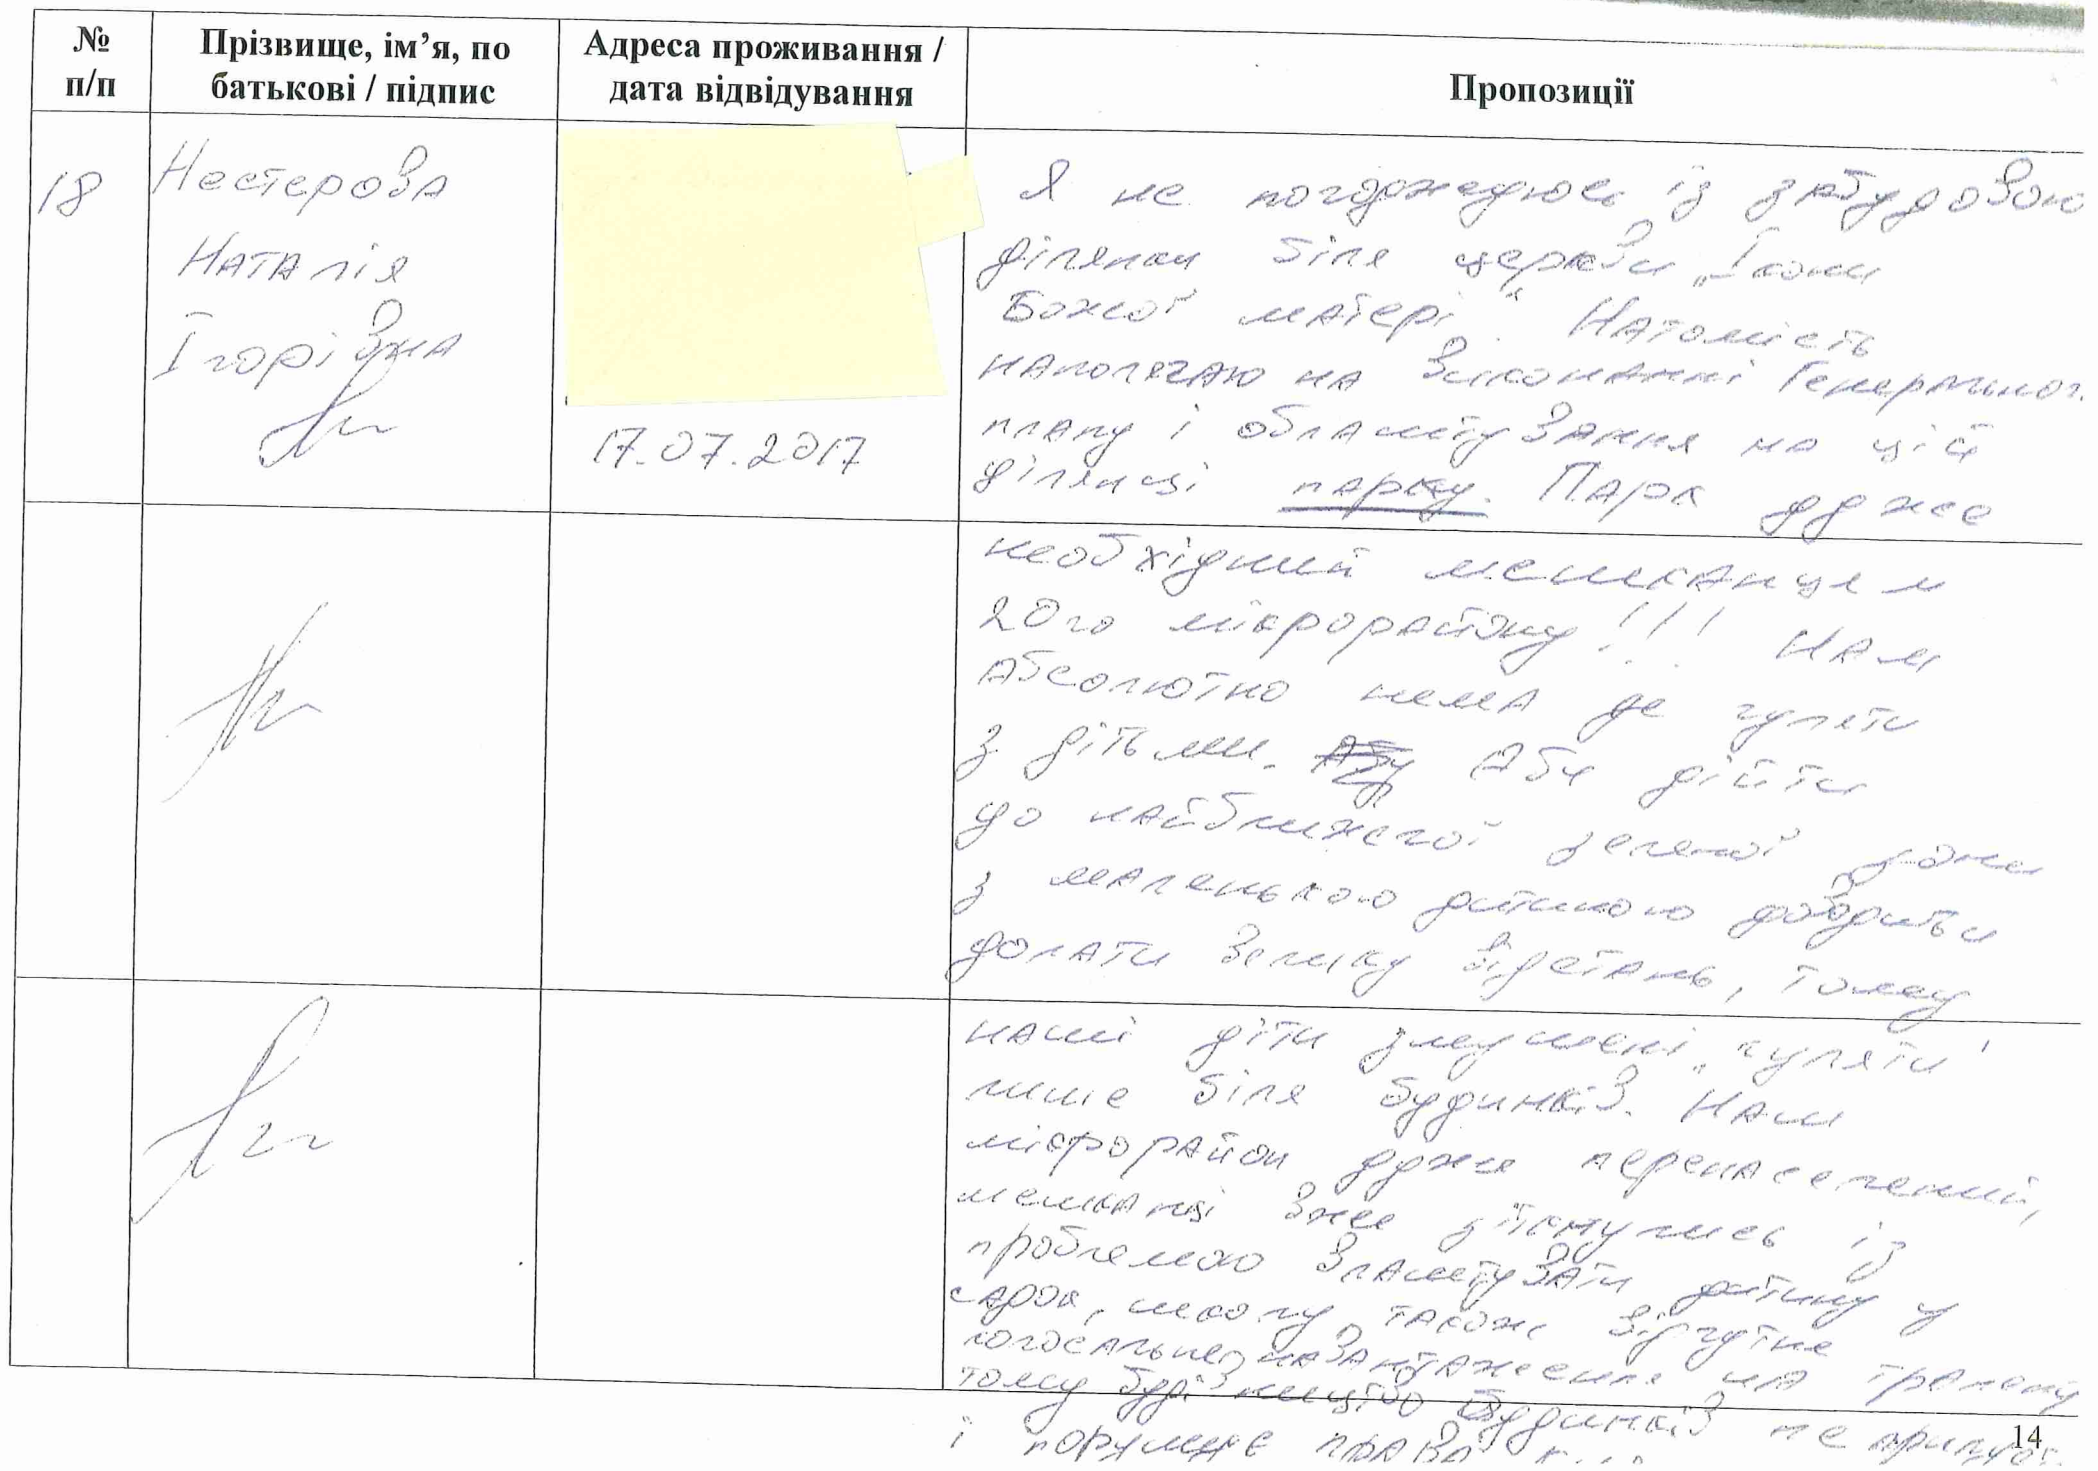 № п/п
Прізвище, ім’я, по батькові / підпис
Адреса проживання / дата відвідування
Пропозиції
18
Нестерова
Наталія
Ігорівна
17.07.2017
Я не погоджуюсь із забудовою
ділянки біля церкви „Ікони
Божої матері“. Натомість
наполягаю на виконанні Генеральног
плану і облаштування на цій
ділянці парку. Парк дуже
необхідний мешканцям
20го мікрорайону!!! Нам
абсолютно нема де гуляти
з дітьми. Аби дійти
до найближчої зеленої зони
з маленькою дитиною
долати велику відстань, тому
наші діти змушені „гуляти“
лише біля будинків. Наш
мікрорайон дуже перенаселений,
мешканці вже зіткнулись із
проблемою влаштувати дитину у
садок, школу, також відчутне
колосальне навантаження на
тому будівництво будинків не
і порушує права
14